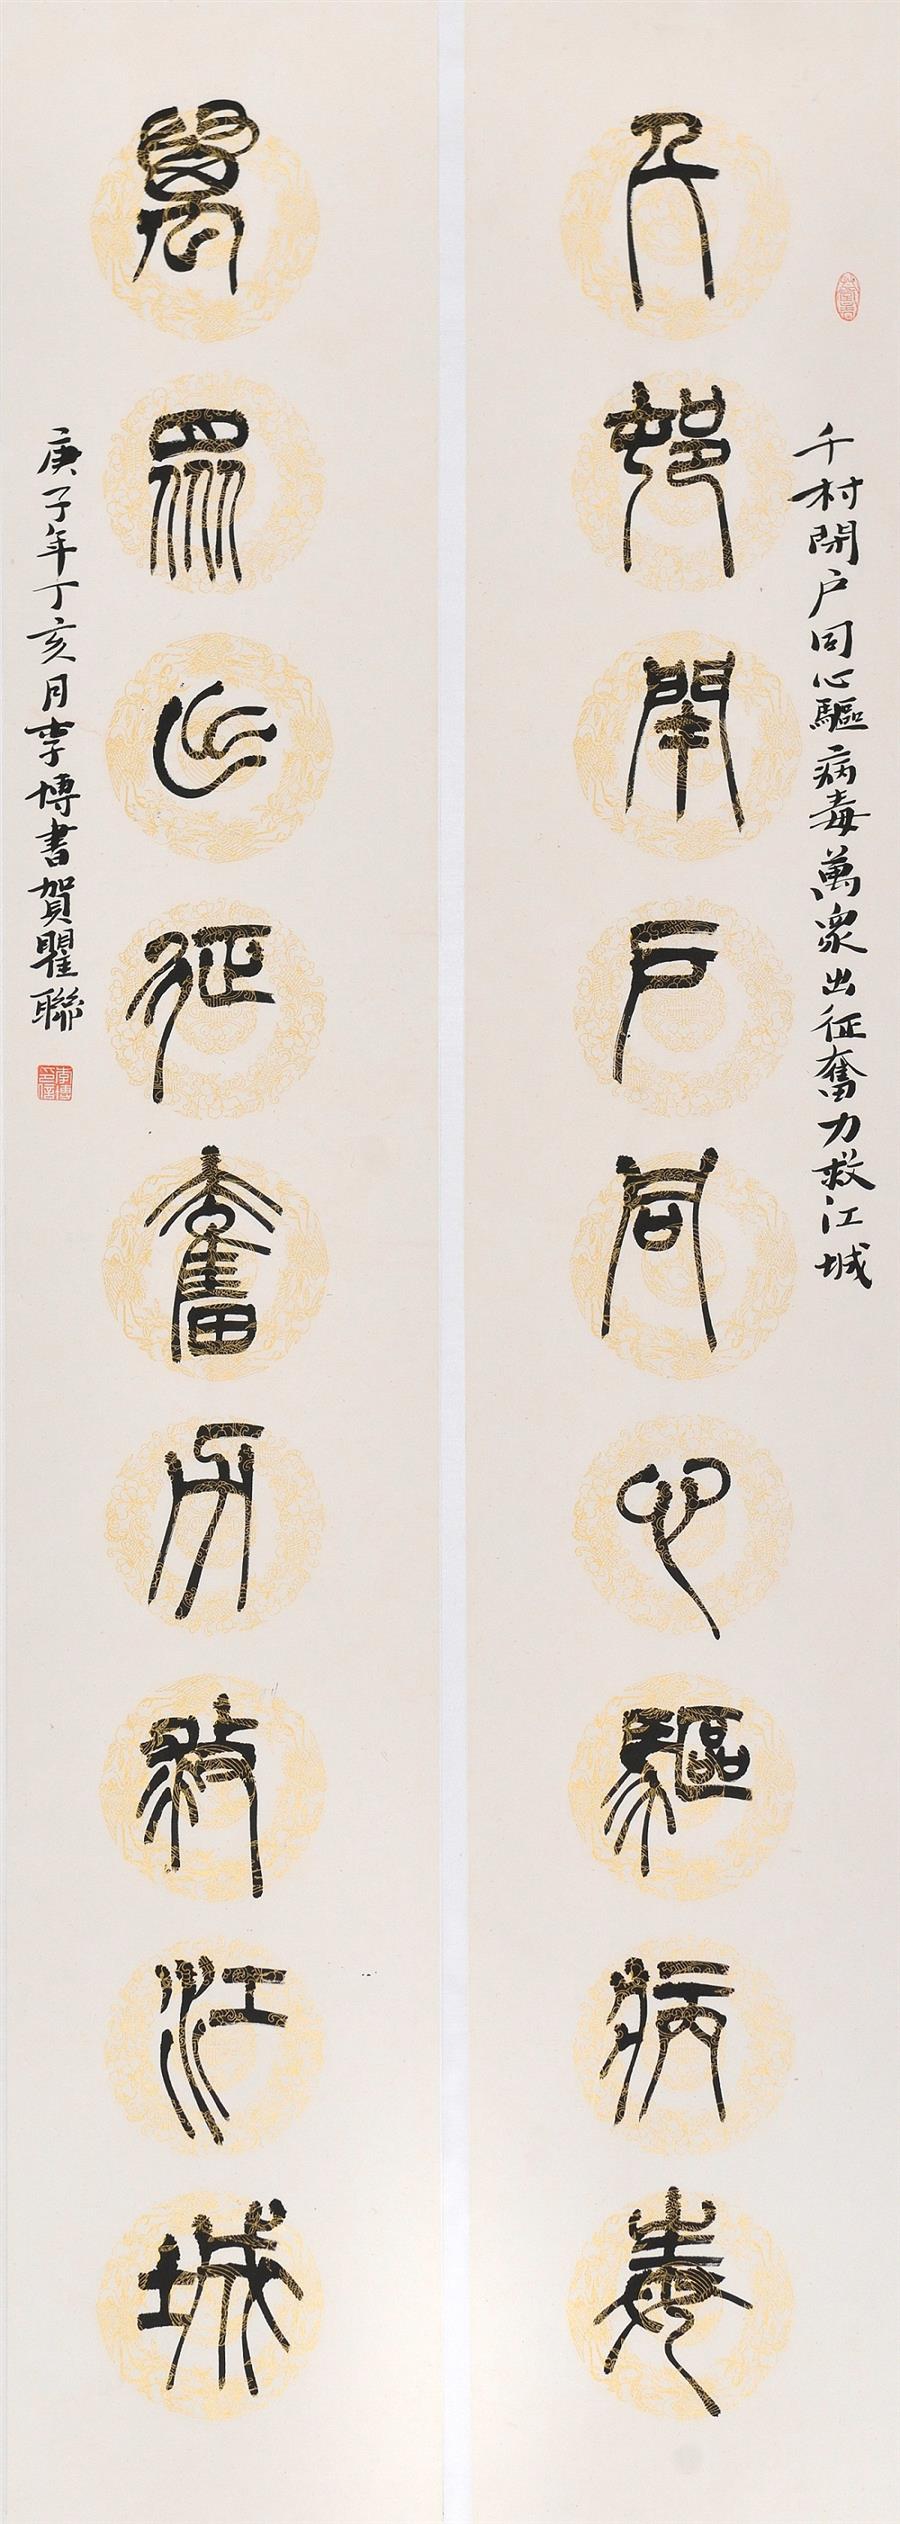 千村閉户同心驅病毒萬衆出征奮力救江城
千邨閉戶同心驅病毒
萬眾出征奮力救江城
庚子年丁亥月李博書賀瞿聯
李博印信